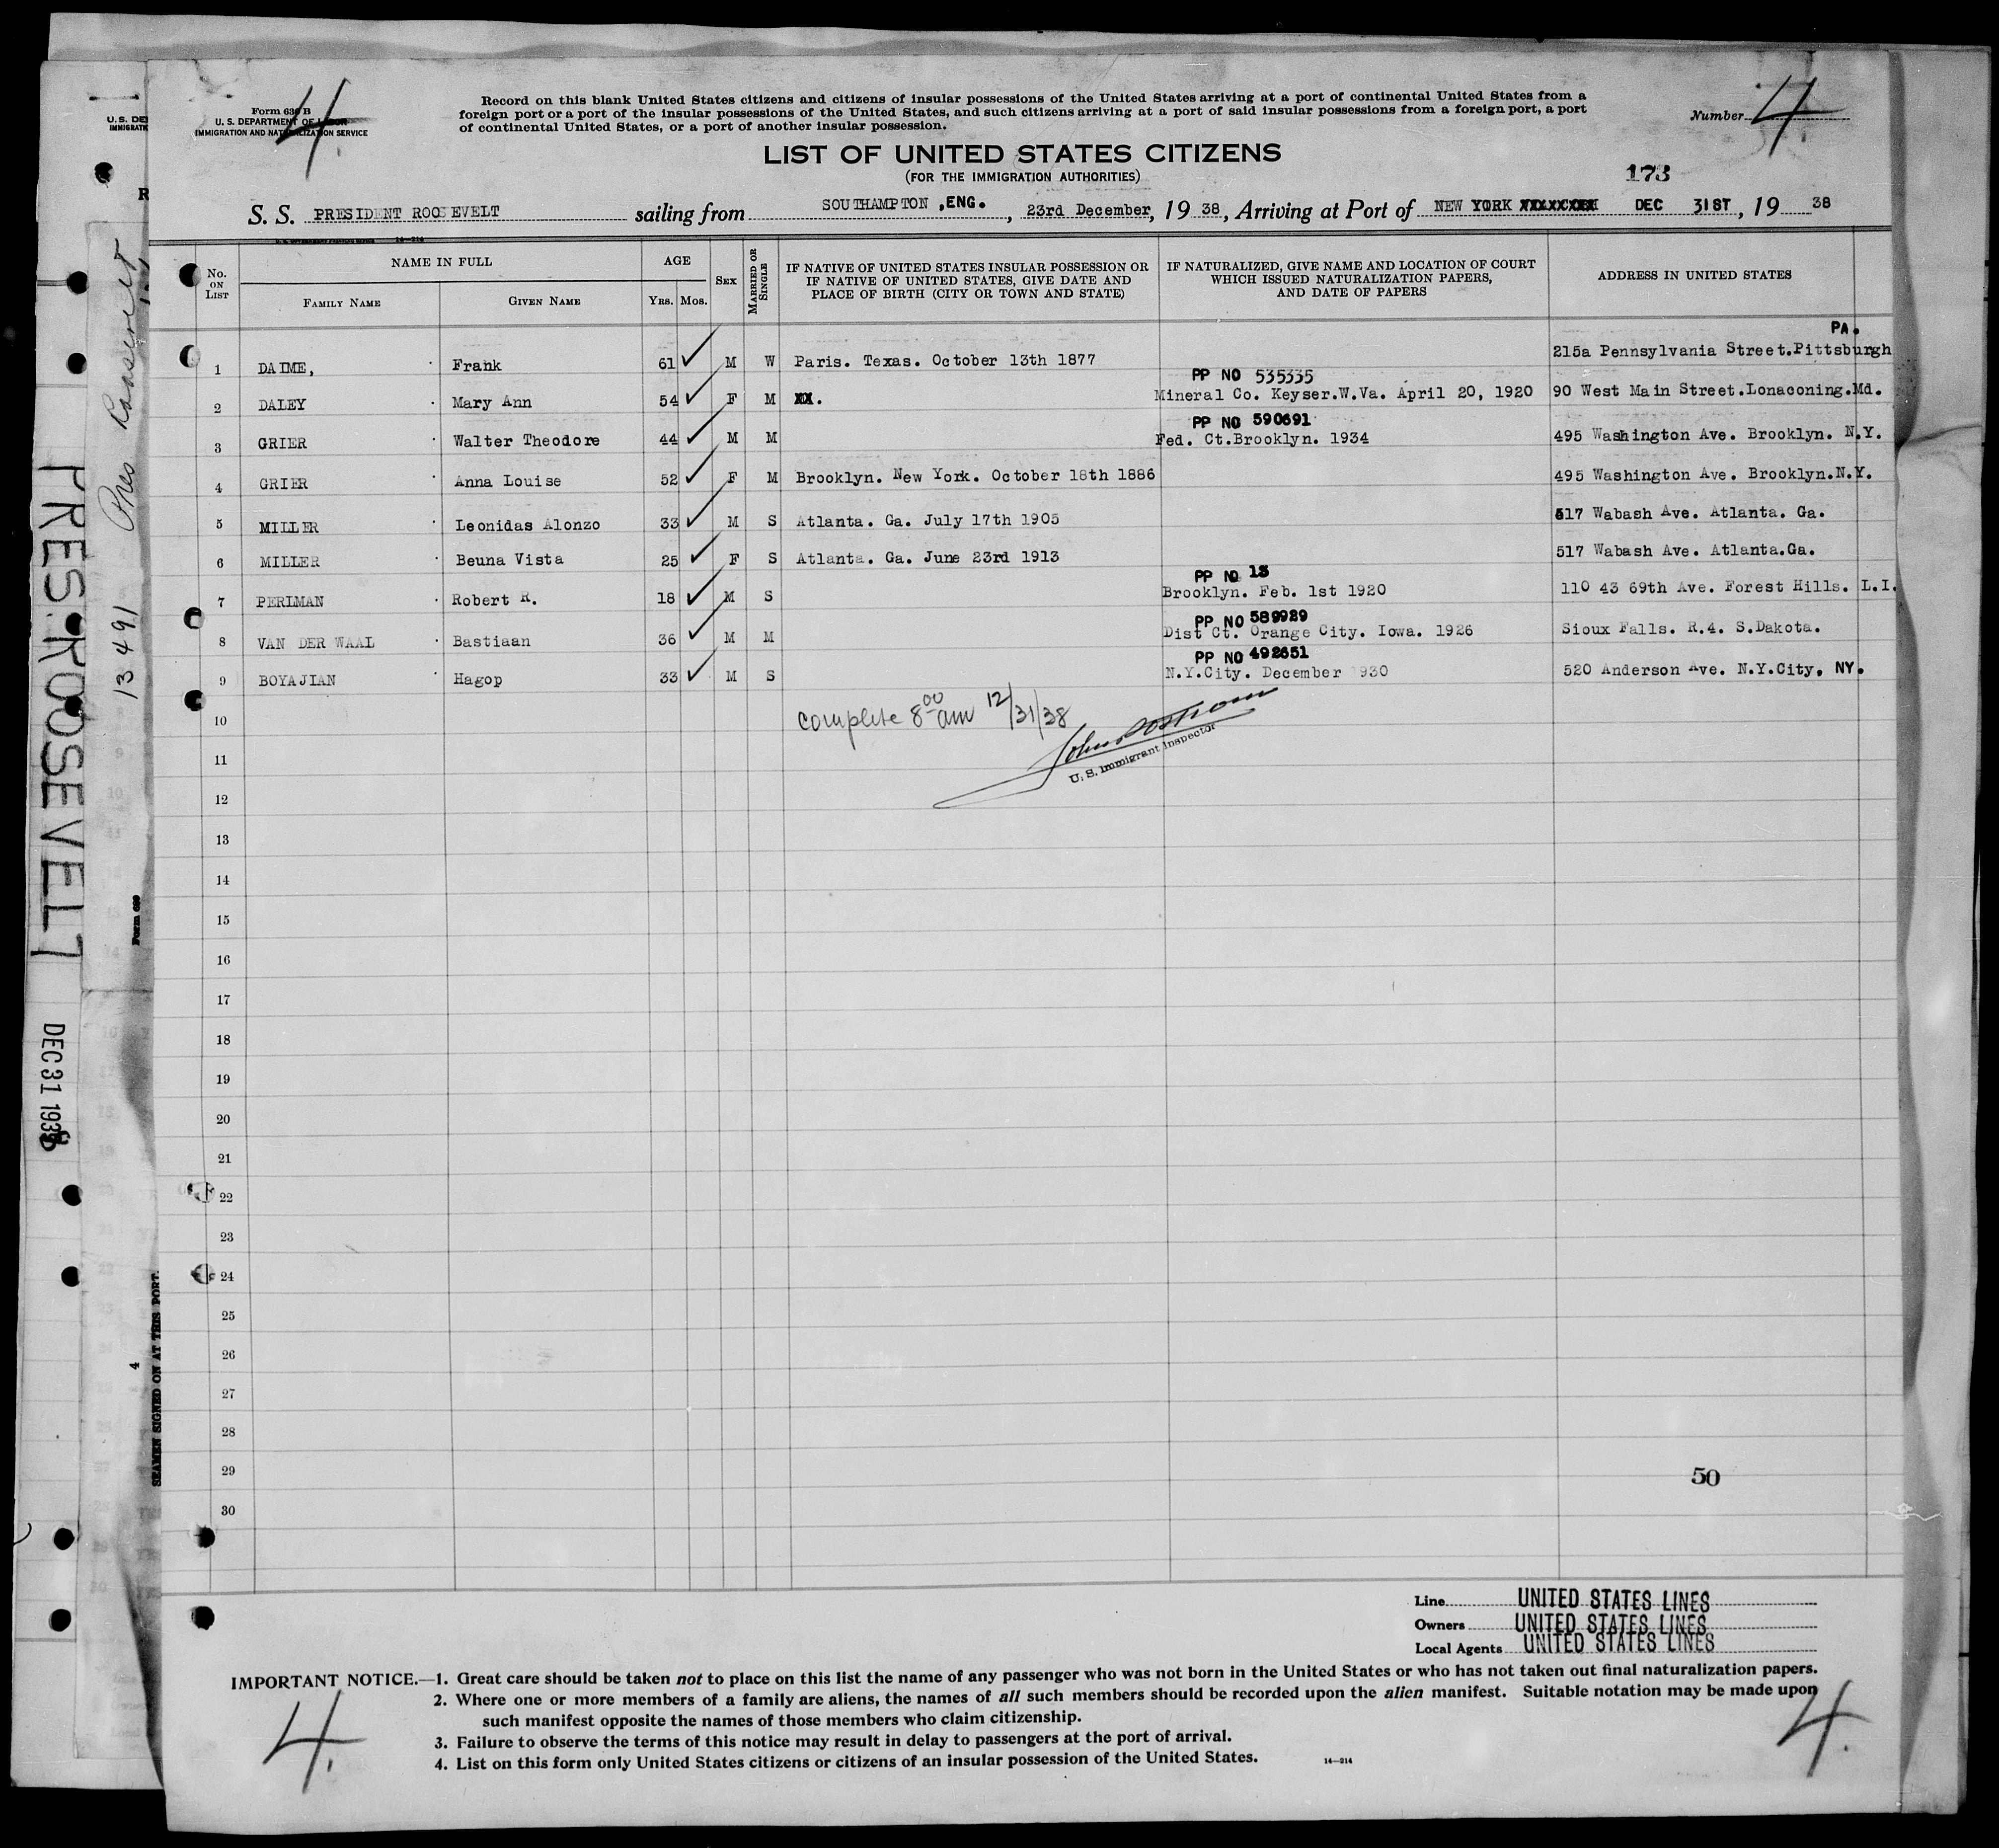 Form 630 B
U. S. DEPARTMENT OF LABOR
IMMIGRATION AND NATURALIZATION SERVICE
4.
Record on this blank United States citizens and citizens of insular possessions of the United States arriving at a port of continental United States from a
foreign port or a port of the insular possessions of the United States, and such citizens arriving at a port of said insular possessions from a foreign port, a port
of continental United States, or a port of another insular possession.
Number 4
LIST OF UNITED STATES CITIZENS
(FOR THE IMMIGRATION AUTHORITIES)
173
S. S. PRESIDENT ROOSEVELT sailing from SOUTHAMPTON ,ENG. , 23rd December, 19 38, Arriving at Port of NEW YORK DEC 31ST, 19 38
No. ON LIST NAME IN FULL FAMILY NAME GIVEN NAME AGE YRS. MOS. SEX MARRIED OR SINGLE IF NATIVE OF UNITED STATES INSULAR POSSESSION OR IF NATIVE OF UNITED STATES, GIVE DATE AND PLACE OF BIRTH (CITY OR TOWN AND STATE) IF NATURALIZED, GIVE NAME AND LOCATION OF COURT WHICH ISSUED NATURALIZATION PAPERS, AND DATE OF PAPERS ADDRESS IN UNITED STATES
PA.
1 DAIME, Frank 61 M W Paris. Texas. October 13th 1877 215a Pennsylvania Street.Pittsburgh
PP NO 535335
2 DALEY Mary Ann 54 F M XX. Mineral Co. Keyser.W.Va. April 20, 1920 90 West Main Street.Lonaconing.Md.
PP NO 590691
3 GRIER Walter Theodore 44 M M Fed. Ct.Brooklyn. 1934 495 Washington Ave. Brooklyn. N.Y.
4 GRIER Anna Louise 52 F M Brooklyn. New York. October 18th 1886 495 Washington Ave. Brooklyn.N.Y.
5 MILLER Leonidas Alonzo 33 M S Atlanta. Ga. July 17th 1905 517 Wabash Ave. Atlanta. Ga.
6 MILLER Beuna Vista 25 F S Atlanta. Ga. June 23rd 1913 517 Wabash Ave. Atlanta.Ga.
PP NO 13
7 PERIMAN Robert R. 18 M S Brooklyn. Feb. 1st 1920 110 43 69th Ave. Forest Hills. L.I.
PP NO 589929
8 VAN DER WAAL Bastiaan 36 M M Dist Ct. Orange City. Iowa. 1926 Sioux Falls. R.4. S.Dakota.
PP NO 492651
9 BOYAJIAN Hagop 33 M S N.Y.City. December 1930 520 Anderson Ave. N.Y.City. NY.
10 complete 8 00 am 12/31/38
11 U. S. Immigrant Inspector
12
13
14
15
16
17
18
19
20
21
22
23
24
25
26
27
28
29 50
30
Line UNITED STATES LINES
Owners UNITED STATES LINES
Local Agents UNITED STATES LINES
IMPORTANT NOTICE.—1. Great care should be taken not to place on this list the name of any passenger who was not born in the United States or who has not taken out final naturalization papers.
2. Where one or more members of a family are aliens, the names of all such members should be recorded upon the alien manifest. Suitable notation may be made upon
such manifest opposite the names of those members who claim citizenship.
3. Failure to observe the terms of this notice may result in delay to passengers at the port of arrival.
4. List on this form only United States citizens or citizens of an insular possession of the United States.
14—214
4.
4.
PRES. ROOSEVELT DEC 31 1938
13491 Pres Roosevelt
Form 689
4
SEAMEN SIGNED ON AT THIS PORT.